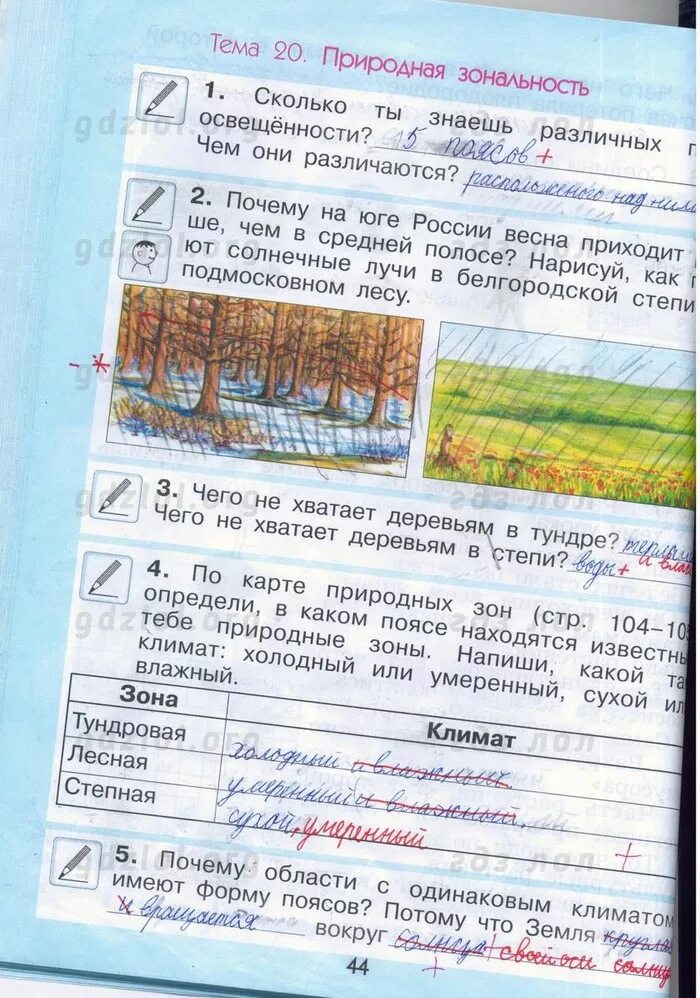 Тема 20. Природная зональность
1. Сколько ты знаешь различных п
освещённости? 5 поясов +
Чем они различаются? расположеного над ними
2. Почему на юге России весна приходит
ше, чем в средней полосе? Нарисуй, как п
ют солнечные лучи в белгородской степи
подмосковном лесу.
3. Чего не хватает деревьям в тундре?
Чего не хватает деревьям в степи? воды +
4. По карте природных зон (стр. 104–10
определи, в каком поясе находятся известны
тебе природные зоны. Напиши, какой та
климат: холодный или умеренный, сухой ил
влажный.
Зона Климат
Тундровая холодный и влажный
Лесная умеренный и влажный
Степная сухой, умеренный
+
5. Почему области с одинаковым климатом
имеют форму поясов? Потому что Земля кругла
и вращается вокруг солнца + своей оси солнц
+
44
gdzlol.org
гдз лол